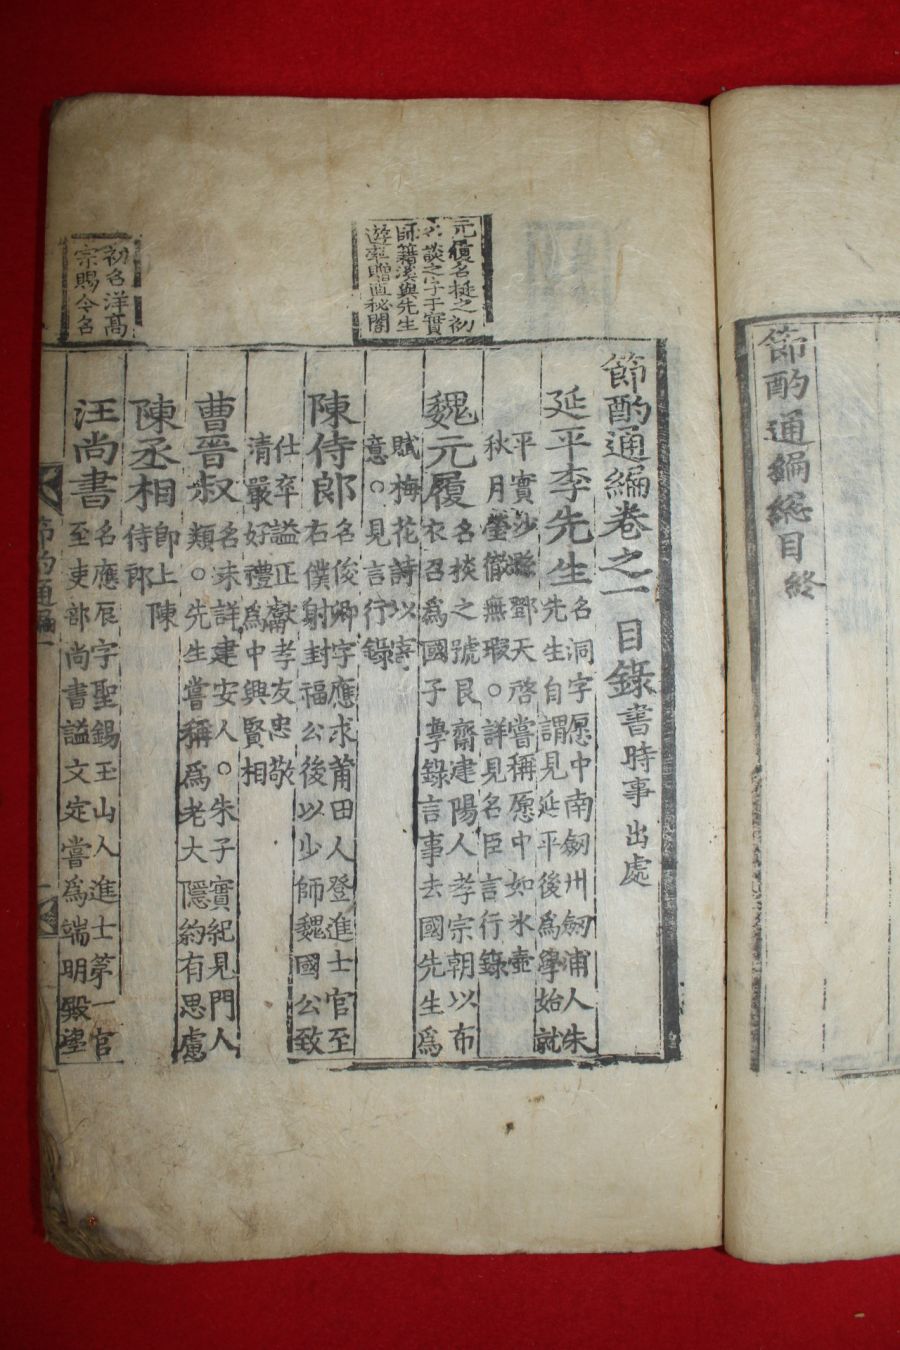 節酌通編總目終
節酌通編卷之一 目錄 書 時事出處
延平李先生
名洞字愿中南劒州劒浦人朱
先生自謂見延平後為學始就
平實沙縣鄧天啓嘗稱愿中如氷壺
秋月瑩徹無瑕○詳見名臣言行錄
元履名挺之初
名掞之字子實
師籍溪與先生
遊卒贈直秘閣
魏元履
名掞之號艮齋建陽人孝宗朝以布
衣召為國子學錄言事去國先生為
賦梅花詩以寄
意○見言行錄
陳侍郎
名俊卿字應求莆田人登進士官至
右僕射封福公後以少師魏國公致
仕卒謚正獻孝友忠敬
清嚴好禮為中興賢相
曹晉叔
名未詳建安人○朱子實紀見門人
類○先生嘗稱為老大隱約有思慮
陳丞相
即上陳
侍郎
初名洋高
宗賜今名
汪尚書
名應辰字聖錫玉山人進士第一官
至吏部尚書謚文定嘗為端明殿
節酌通編一